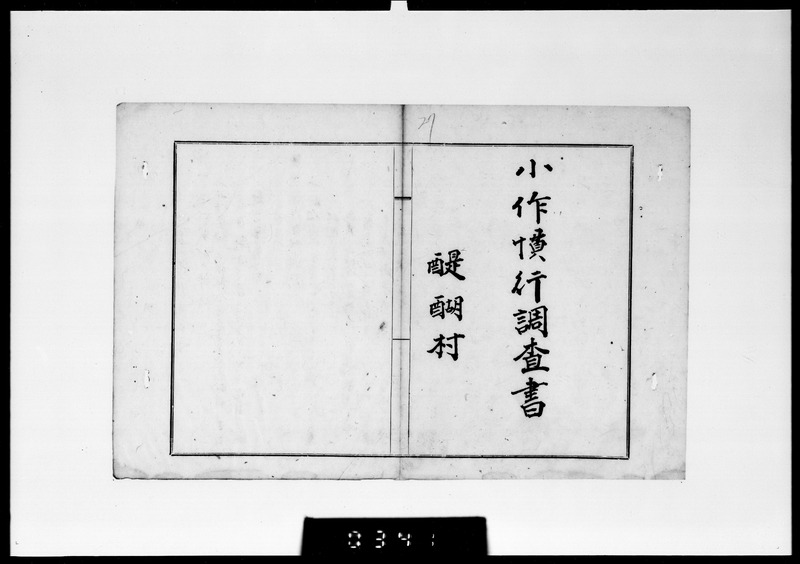 小作慣行調査書
醍醐村
21
0341